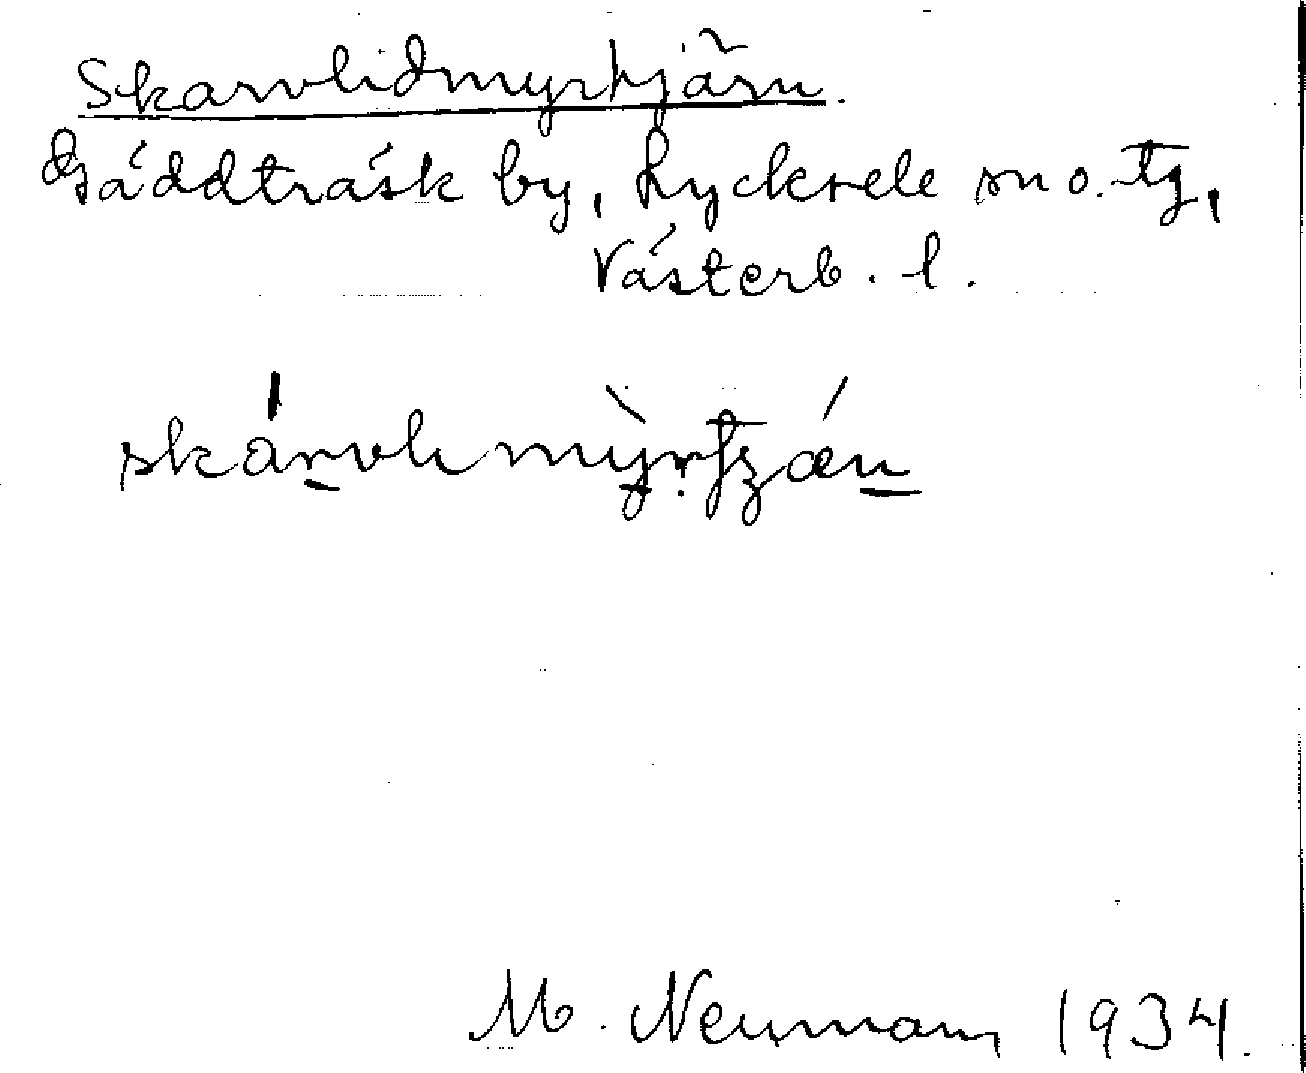 Skarvlidmyrtjärn.
Gäddträsk by, Lycksele sn o. tg,
Västerb. l.
M. Neumann 1934.